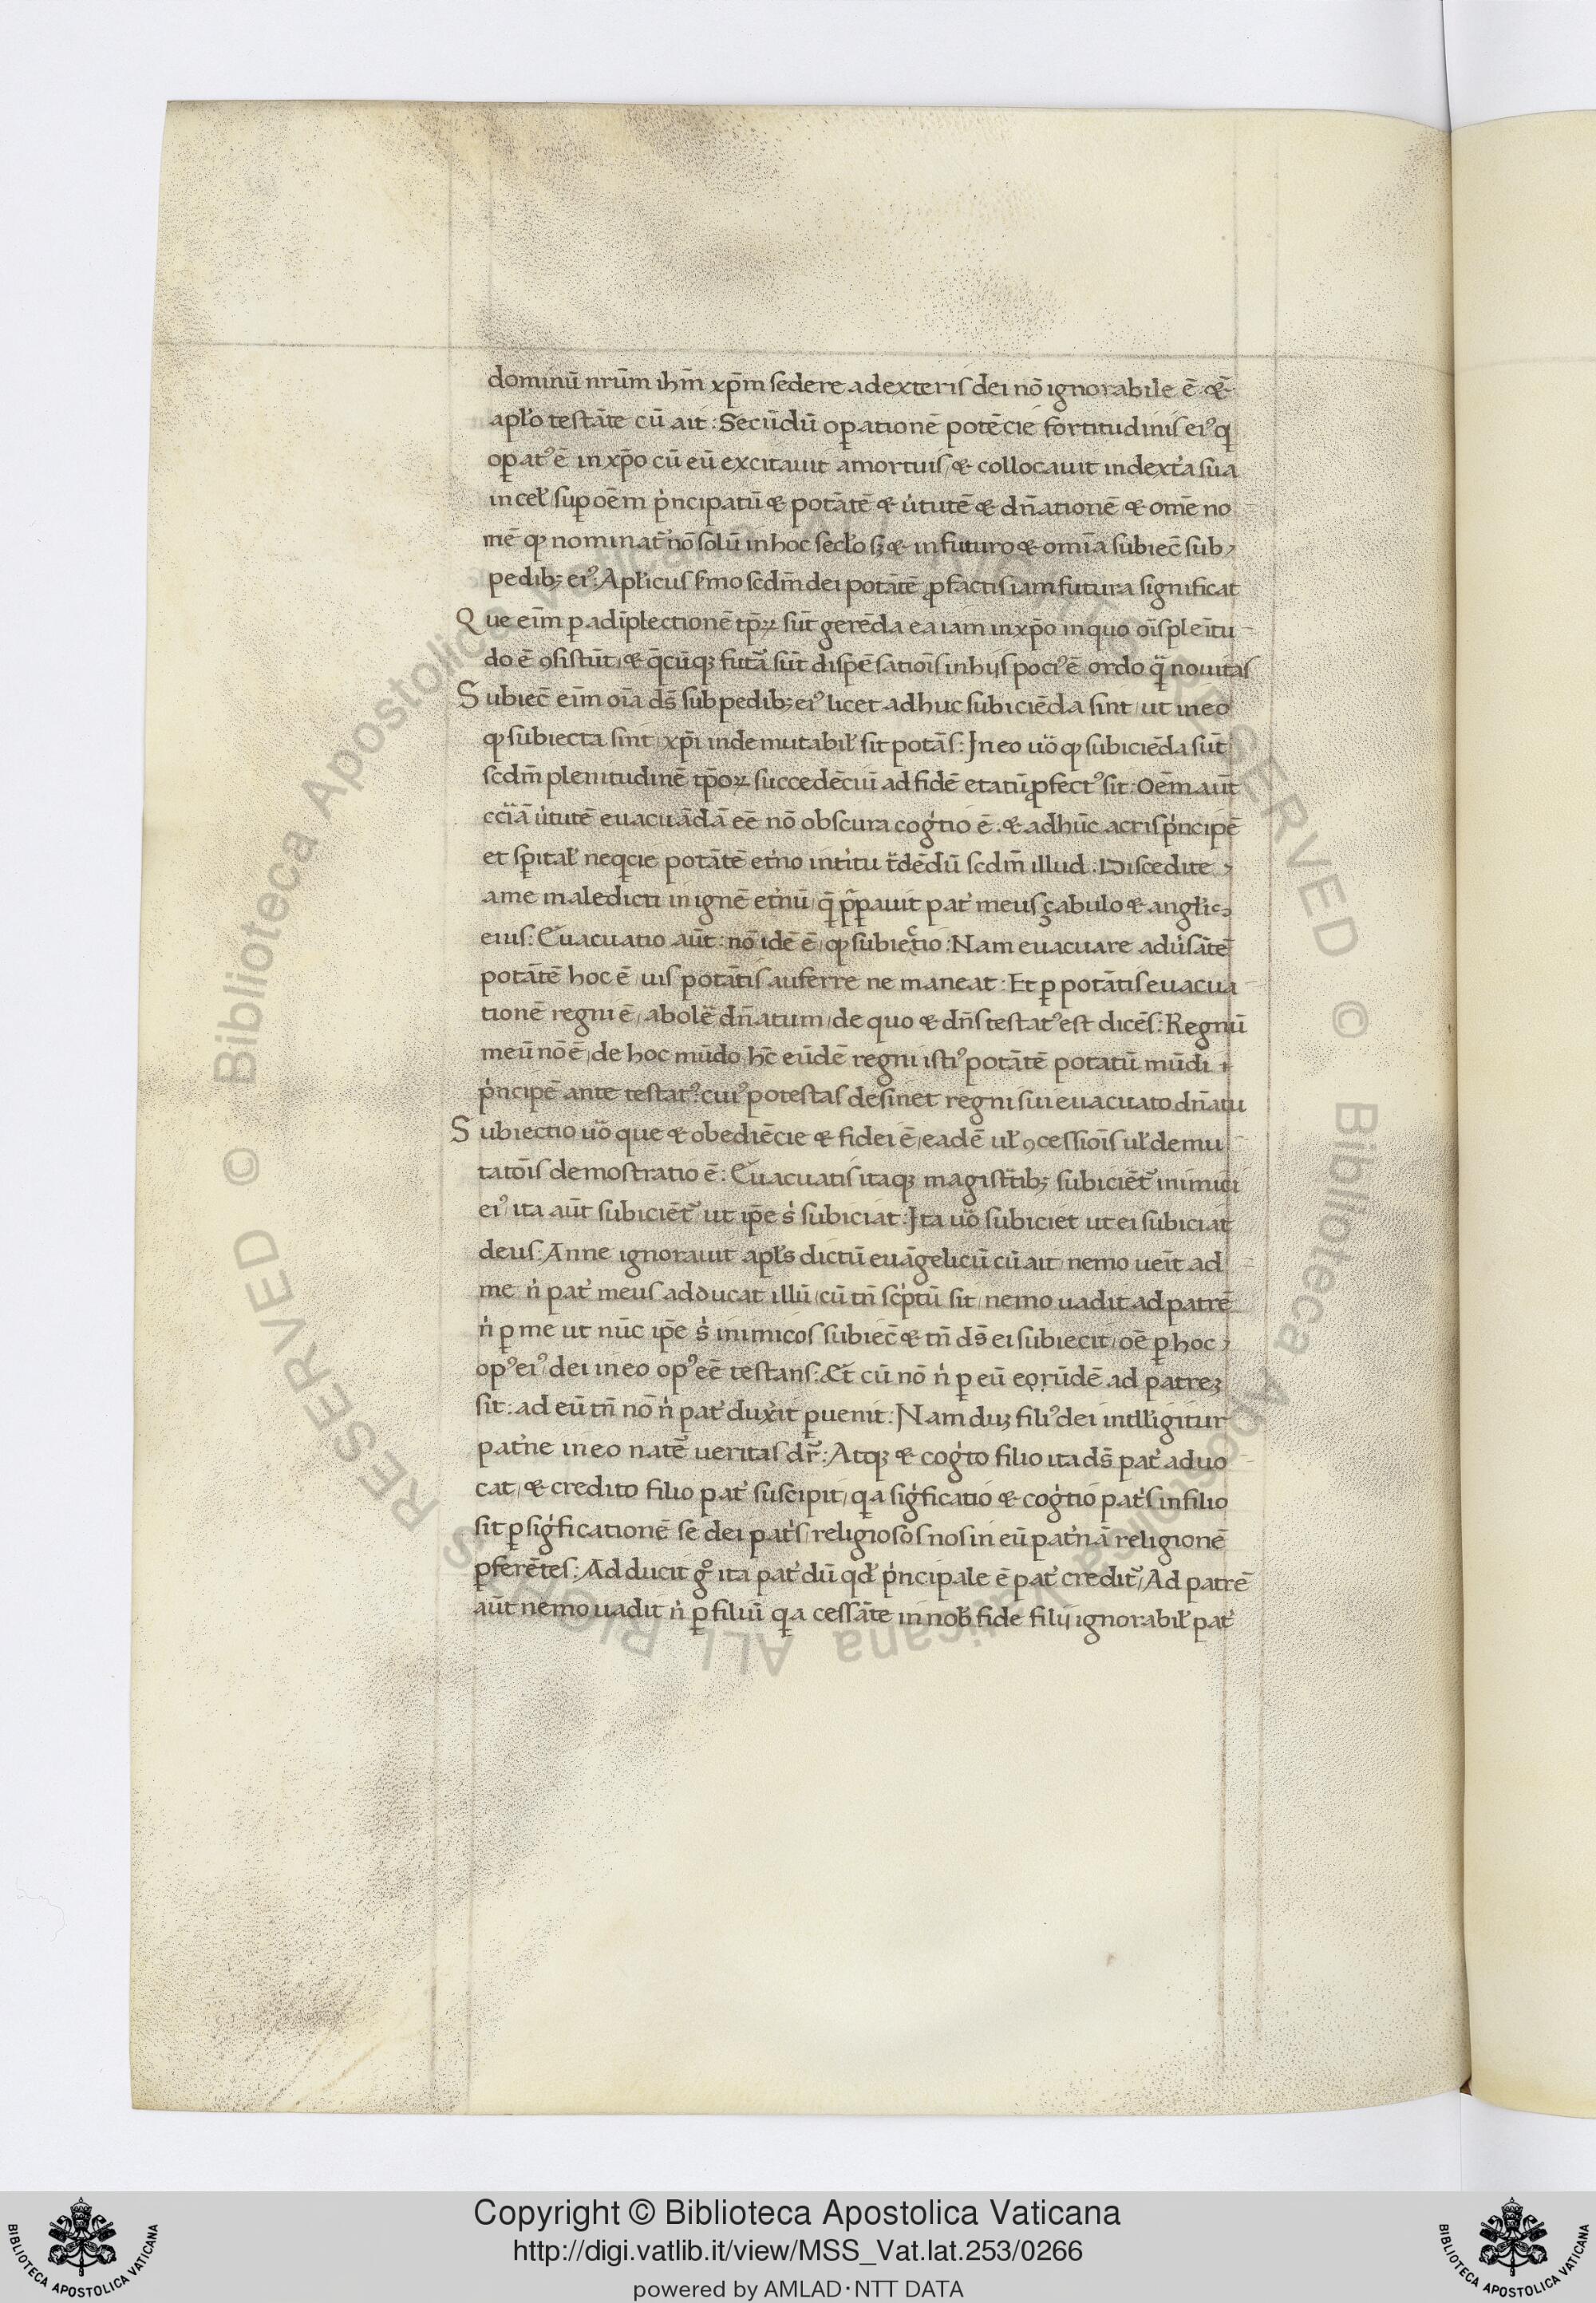 dominū nr̄um ih̄m xp̄m sedere adexteris dei nō ignorabile ē &
apl̄o testāte cū ait: Secūdū oꝑationē potēcie fortitudinis eiꝰ q̄
oꝑatꝰ ē in xp̄o cū eū excitauit amortuis, & collocauit indext̓a sua
in cel̄, suꝑ oēm p̓ncipatū & potātē & u̓tutē & dn̄ationē & omē no
mē ꝙ nominat̄ nō solū in hoc secl̄o sꝫ & in futuro & omīa subiec̄ sub
pedibꝫ eiꝰ. Apl̄icus s̓mo scdm̄ dei potātē ꝓ factis iam futura significat
Que eīm ꝑ adīplectionē tp̄ꝝ sūt gerēda ea iam inxp̄o in quo oīs pleītu
do ē ꝯsistūt, & q̄cūqꝫ futā sūt dispēsatiōis in hijs pociꝰ ē ordo q̄ nouitas
Subiec̄ eīm oīa ds̄ sub pedibꝫ eiꝰ licet adhuc subiciēda sint, ut in eo
ꝙ subiecta sint, xp̄i indemutabil̄ sit potās: In eo uō ꝙ subiciēda sūt
scdm̄ plenitudinē tp̄oꝝ succedēciū ad fidē etatū ꝓfectꝰ sit: Oēm aūt
cc̄iā u̓tutē euacuādā eē nō obscura cog̓tio ē. & adhūc aeris p̓ncipē
et sp̄ital̄ neqcie potātē et̓no int̓itu t̄dēdū scdm̄ illud: Discedite
ame maledicti in ignē et̓nū, q̄ p̄ꝑauit pat̓ meus çabulo & angl̄ic
eius: Euacuatio aūt: nō idē ē, ꝙ subiectio: Nam euacuare adu̓sātē
potātē hoc ē uis potātis auferre ne maneat: Et ꝑ potātis euacua
tionē regni ē, abolē dn̄atum, de quo & dn̄s testatꝰ est dicēs: Regnū
meū nō ē, de hoc mūdo hc̄ eūdē regni istiꝰ potātē potatū mūdi
p̓ncipē ante testatꝰ: cuiꝰ potestas desinet regni sui euacuato dn̄atu
Subiectio uō que & obediēcie & fidei ē, eadē ul̄ ꝯcessiōis ul̄ demu
tatōis demostratio ē: Euacuatis itaqꝫ magist̄tibꝫ subiciēt̄ inimici
eiꝰ ita aūt subiciēt̄ ut ip̄e s̓ subiciat: Ita uō subiciet ut ei subiciat
deus: Anne ignorauit apl̄s dictū euāgelicū cū ait, nemo ueīt ad
me n̓ pat̓ meus adducat illū, cū tn̄ sc̓ptū sit, nemo uadit ad patrē
n̓ ꝑ me ut nūc ip̄e s̓ inimicos subiec̄ & tn̄ ds̄ ei subiecit, oē ꝑ hoc
opꝰ eiꝰ dei in eo opꝰ eē testans: Et cū nō n̓ ꝑ eū eorūdē ad patreꝫ
sit: ad eū tn̄ nō n̓ pat̓ dux̓it ꝑuenit: Nam duꝫ filiꝰ dei intll̄igitur
pat̓ne in eo natē ueritas dr̄: Atqꝫ & cog̓to filio ita ds̄ pat̓ aduo
cat, & credito filio pat̓ suscipit, qa sig̓ficatio & cog̓tio pat̓s in filio
sit ꝑ sig̓ficationē se dei pat̓s, religiosos nos in eū pat̓nā religionē
ꝑferētes: Adducit gͦ ita pat̓ dū qd̄ p̓ncipale ē pat̓ credit̄, Ad patrē
aūt nemo uadit n̓ ꝑ filiū qa cessāte in nob̄ fide filij ignorabil̄ pat̓
Copyright © Biblioteca Apostolica Vaticana
http://digi.vatlib.it/view/MSS_Vat.lat.253/0266
powered by AMLAD·NTT DATA